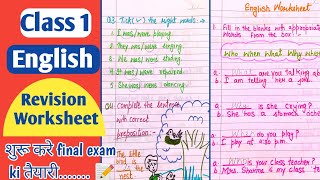 Class 1
English
Revision
Worksheet
शुरू करे final exam
ki तैयारी.......
Q3. Tick (✓) the right words :-
1. I was/were playing.
2. They was/were singing.
3. We was/were
4. It was/were repaired.
5. She was/were dancing.
Q4. Complete the sentences
with correct
preposition:-
The little
bird is
the nest.
English Worksheet
1. Fill in the blanks with appropriate
words from the box:
Who when what Why whose
a. What are you talking
b. I am telling her a joke.
a. Why is she crying?
b. She has a stomach
a. When do you play?
b. I play at 5:30 pm.
a. Who is your class teacher?
Mrs. Sharma is my class